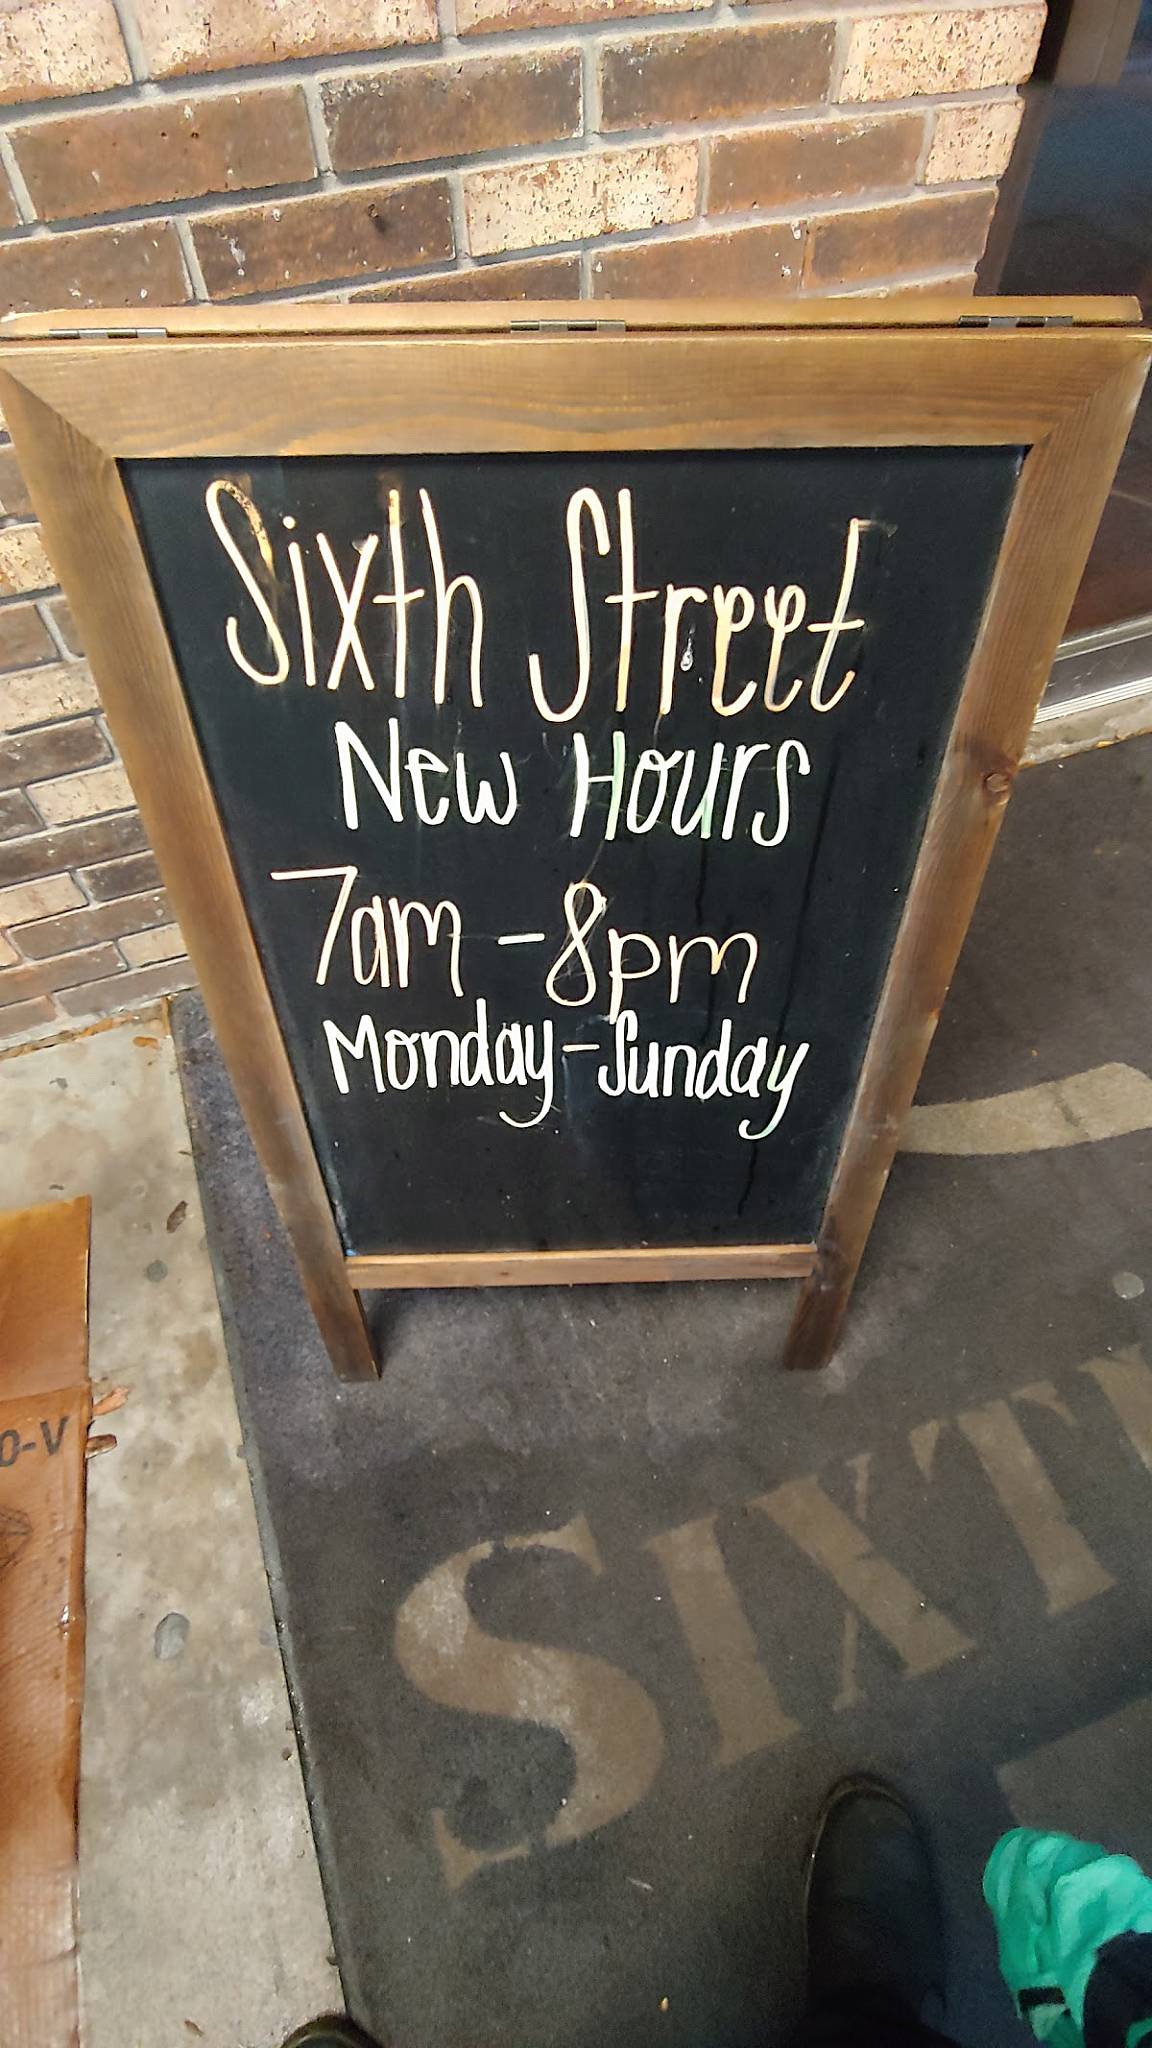 Sixth Street
New Hours
7am - 8pm
Monday - Sunday
O-V
SIXT